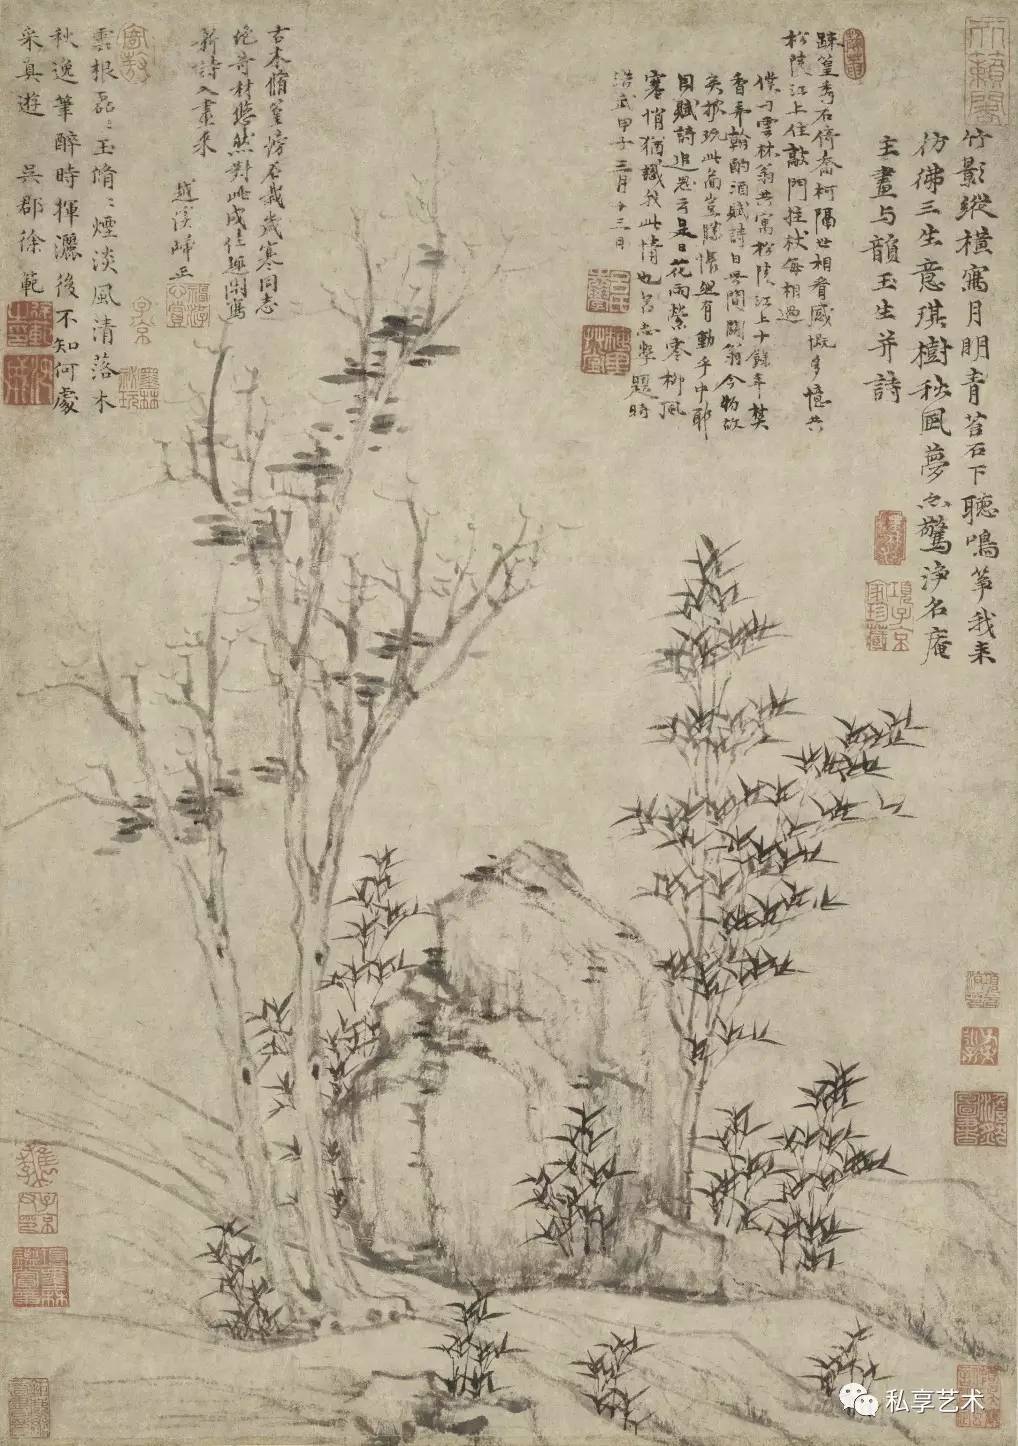 竹影縱橫寫月明青苔石下聽鳴箏我来
仿彿三生意琪樹秋風夢亦驚淨名庵
主畫与韻玉生并詩
踈篁秀石倚喬柯隔世相看感慨多憶共
松陵江上住敲門拄杖每相過
僕与雲林翁共寓松陵江上十餘年焚
香弄翰酌酒賦詩日無間闕翁今物故
矣披玩此圖豈勝悵然有動乎中耶
因賦詩追思云是日花雨縈零柳風
寒悄猶識我此情也呂志學題時
洪武甲子三月十三日
古木脩篁傍石栽歲寒同志
絕奇材悠然對此成佳趣閑寫
新詩入畫来
越溪歸正
雲根磊磊玉脩脩煙淡風清落木
秋逸筆醉時揮灑後不知何處
采真遊 吳郡徐範
天籟閣
項子京家珍藏
子京
私享艺术